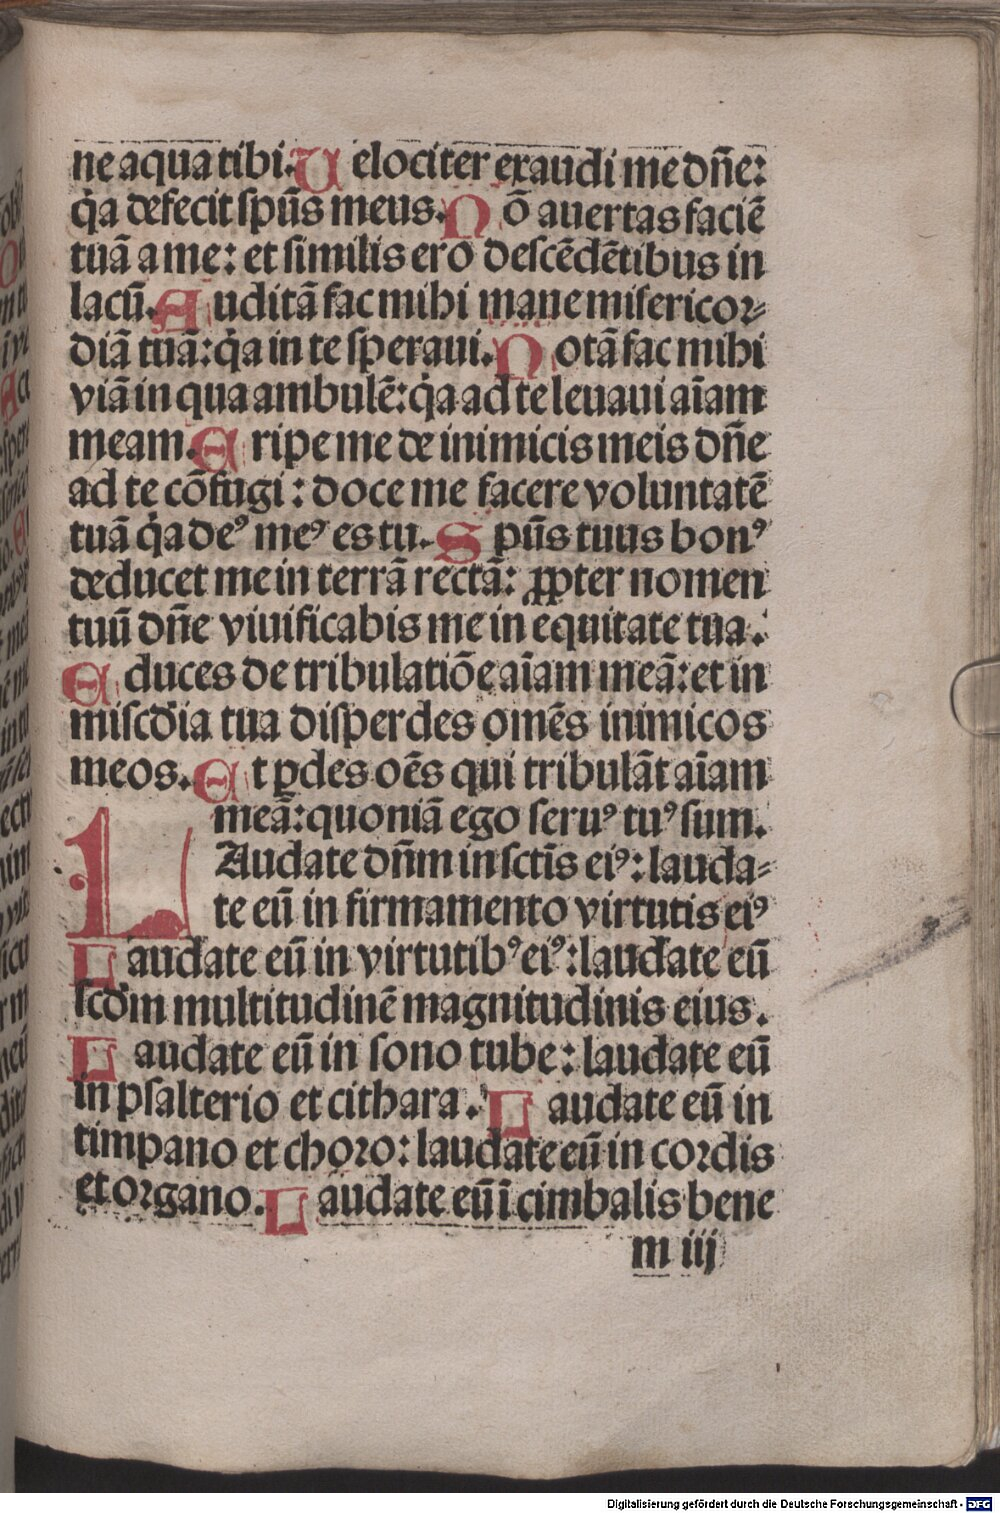 ne aqua tibi. Uelociter exaudi me dn̄e:
q̇a defecit spūs meus. Nō auertas faciē
tuā a me: et similis ero descēdētibus in
lacū. Auditā fac mihi mane misericor-
diā tuā: q̇a in te speraui. Notā fac mihi
viā in qua ambulē: q̇a ad te leuaui aīam
meam. Eripe me de inimicis meis dn̄e
ad te cōfugi: doce me facere voluntatē
tuā q̇a deꝰ meꝰ es tu. Spūs tuus bonꝰ
deducet me in terrā rectā: ꝓpter nomen
tuū dn̄e viuificabis me in equitate tua.
Educes de tribulatiōe aīam meā: et in
misc̄dia tua disperdes omēs inimicos
meos. Et ꝑdes oēs qui tribulāt aīam
meā: quoniā ego seruꝰ tuꝰ sum.
LAudate dn̄m in sctīs eiꝰ: lauda-
te eū in firmamento virtutis eiꝰ
Laudate eū in virtutibꝰ eiꝰ: laudate eū
scd̄m multitudinē magnitudinis eius.
Laudate eū in sono tube: laudate eū
in psalterio et cithara. Laudate eū in
timpano et choro: laudate eū in cordis
et organo. Laudate eū ī cimbalis bene
m iij
Digitalisierung gefördert durch die Deutsche Forschungsgemeinschaft - DFG